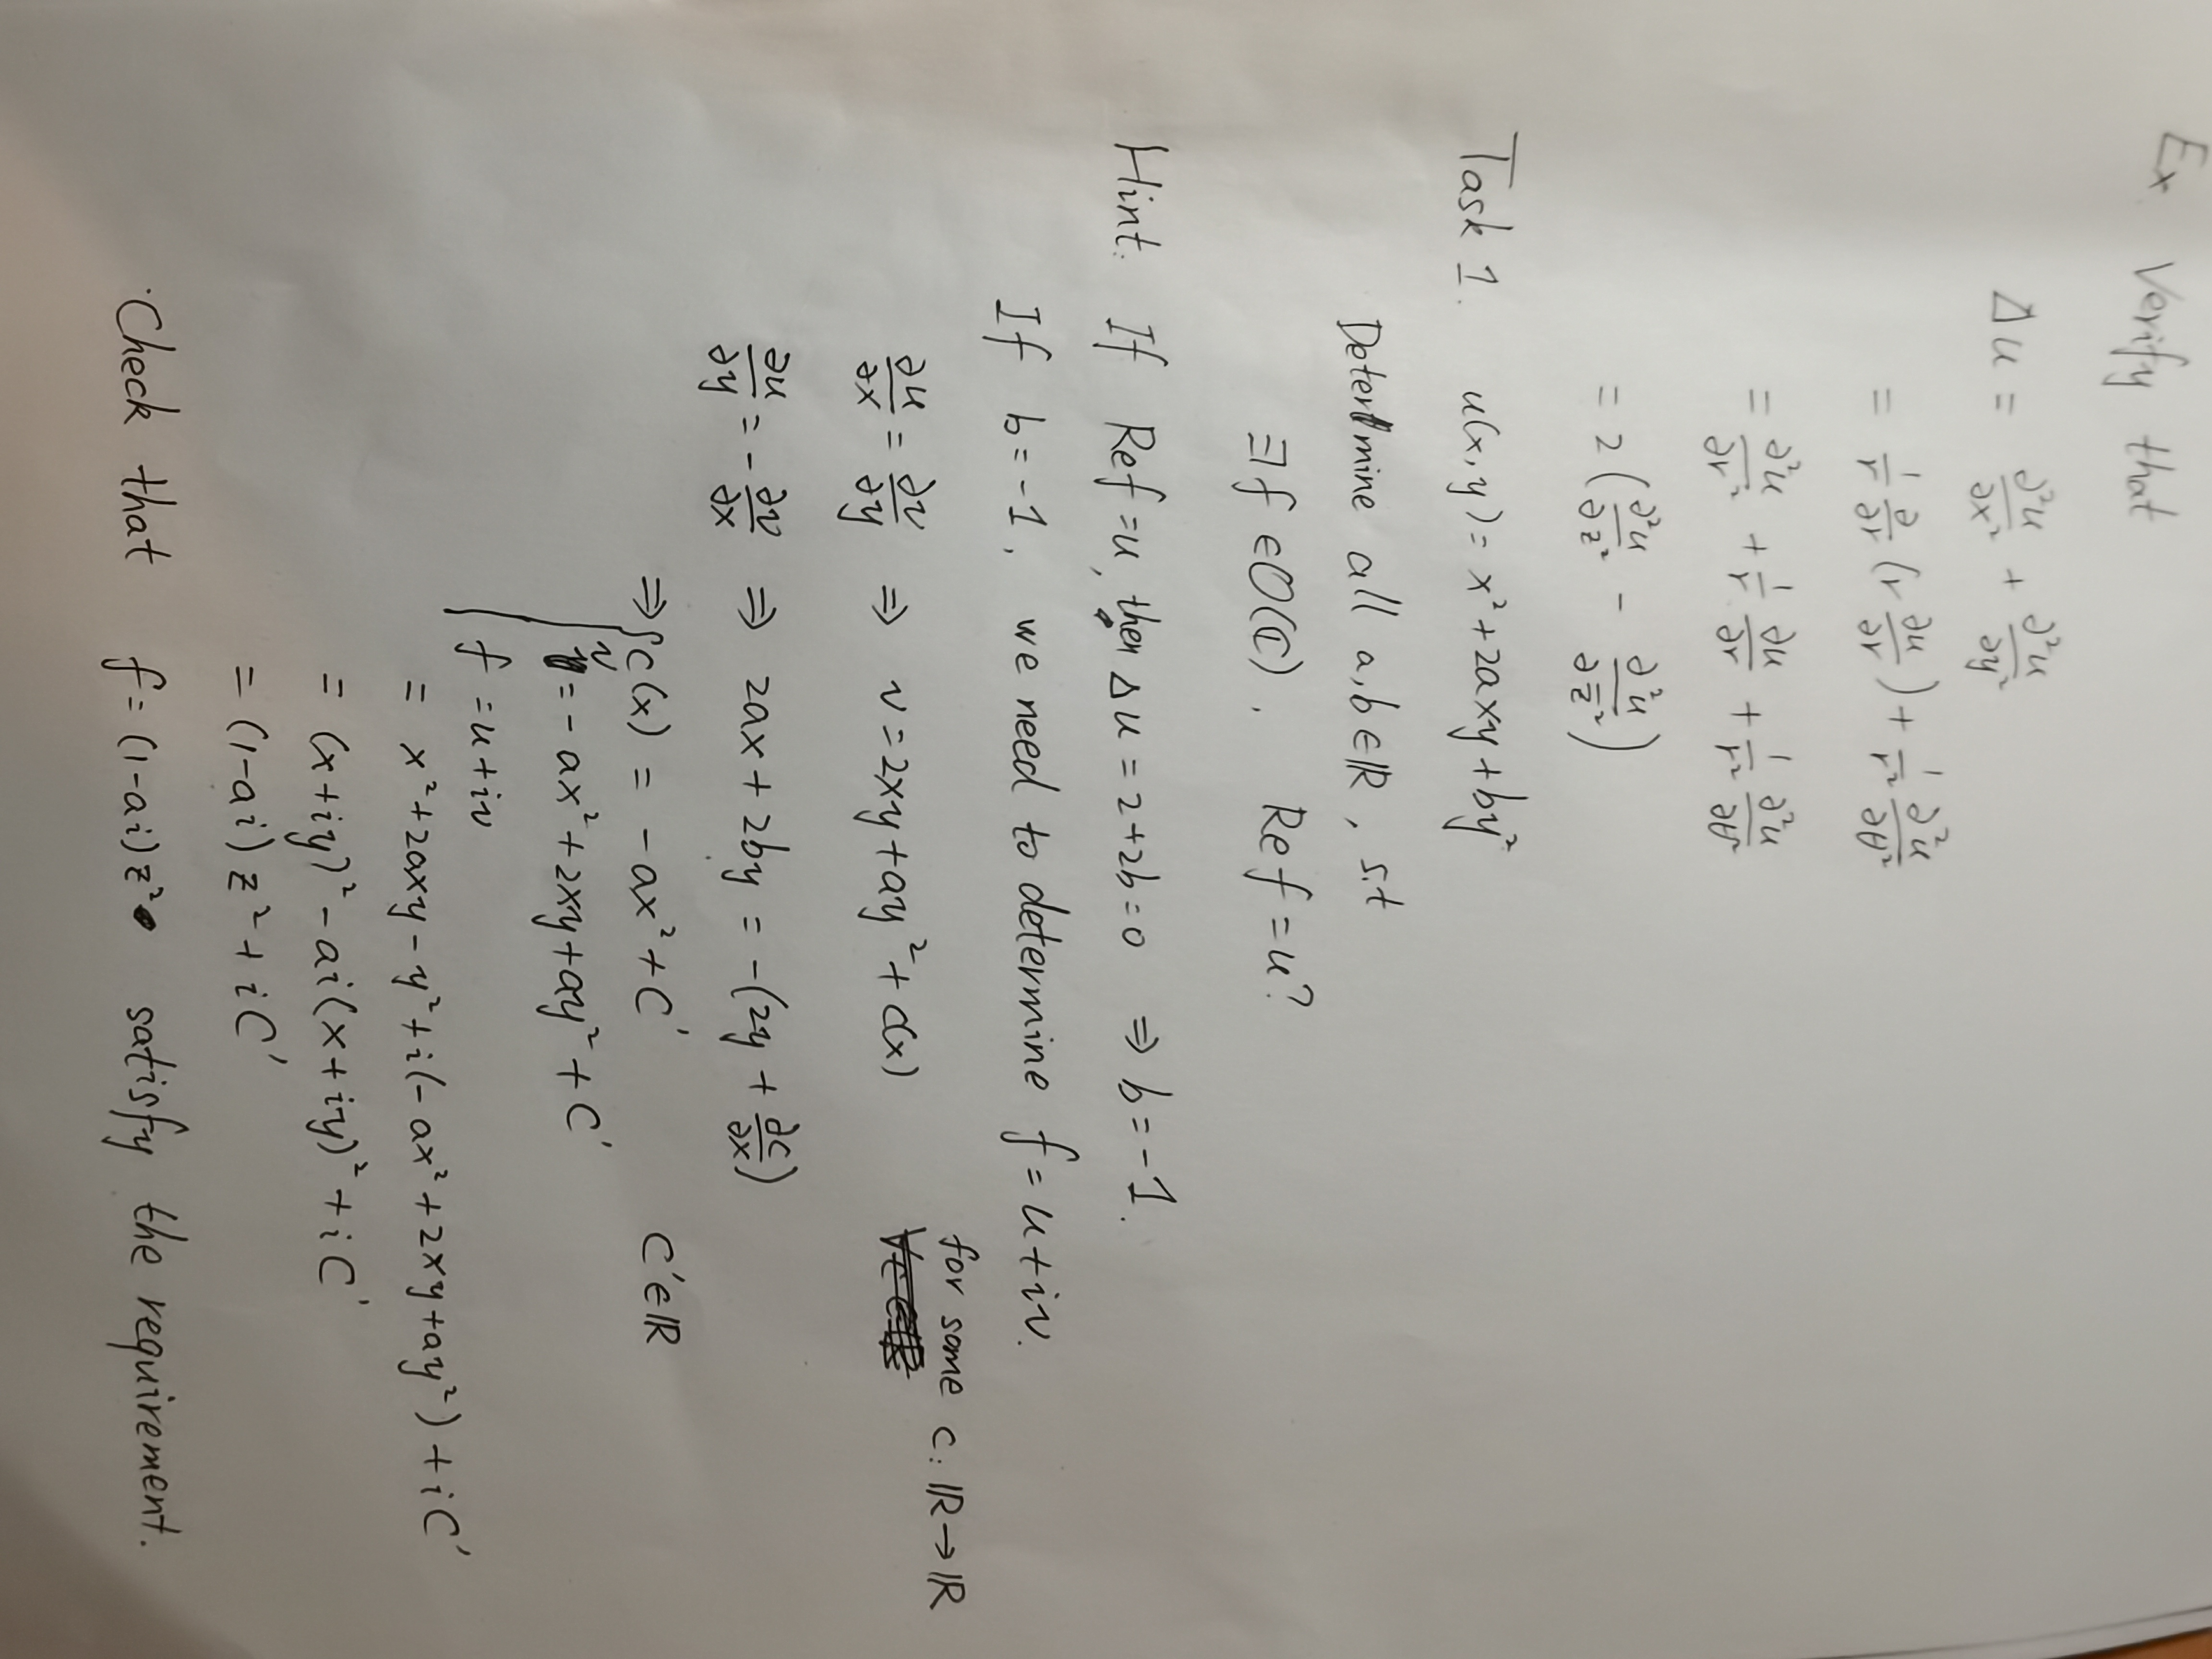 Ex. Verify that
Δu = ∂²u/∂x² + ∂²u/∂y²
= 1/r ∂/∂r (r ∂u/∂r) + 1/r² ∂²u/∂θ²
= ∂²u/∂r² + 1/r ∂u/∂r + 1/r² ∂²u/∂θ²
= 2(∂²u/∂z² - ∂²u/∂z̄²)
Task 1. u(x,y) = x² + 2axy + by²
Determine all a,b ∈ ℝ, s.t
∃f ∈ O(ℂ), Re f = u?
Hint. If Re f = u, then Δu = 2+2b = 0 ⇒ b = -1.
If b = -1, we need to determine f = u + iv.
for some c: ℝ → ℝ
∂u/∂x = ∂v/∂y ⇒ v = 2xy + ay² + c(x)
∂u/∂y = -∂v/∂x ⇒ 2ax + 2by = -(2y + ∂c/∂x)
⇒ { c(x) = -ax² + C' C' ∈ ℝ
v = -ax² + 2xy + ay² + C'
f = u + iv
= x² + 2axy - y² + i(-ax² + 2xy + ay²) + iC'
= (x+iy)² - ai(x+iy)² + iC'
= (1-ai) z² + iC'
Check that f = (1-ai) z² satisfy the requirement.